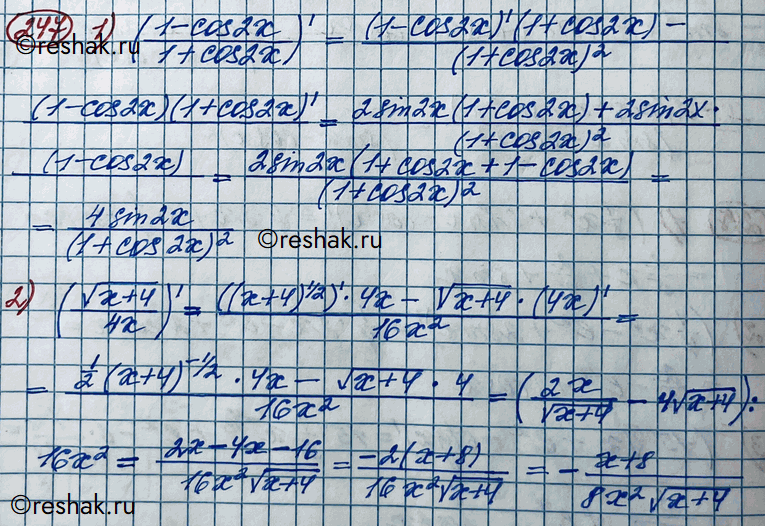 247 1) ((1-cos2x)/(1+cos2x))' = ((1-cos2x)'(1+cos2x) -)/((1+cos2x)²)
©reshak.ru
((1-cos2x)(1+cos2x)')/ = (2sin2x(1+cos2x)+2sin2x·)/((1+cos2x)²)
(1-cos2x)/ = (2sin2x(1+cos2x+1-cos2x))/((1+cos2x)²) =
= (4sin2x)/((1+cos2x)²)
©reshak.ru
2) (√(x+4)/(4x))' = (((x+4)^(1/2))'·4x - √(x+4)·(4x)')/(16x²) =
= (1/2(x+4)^(-1/2)·4x - √(x+4)·4)/(16x²) = (2x/√(x+4) - 4√(x+4)):
16x² = (2x-4x-16)/(16x²√(x+4)) = (-2(x+8))/(16x²√(x+4)) = -(x+8)/(8x²√(x+4))
©reshak.ru